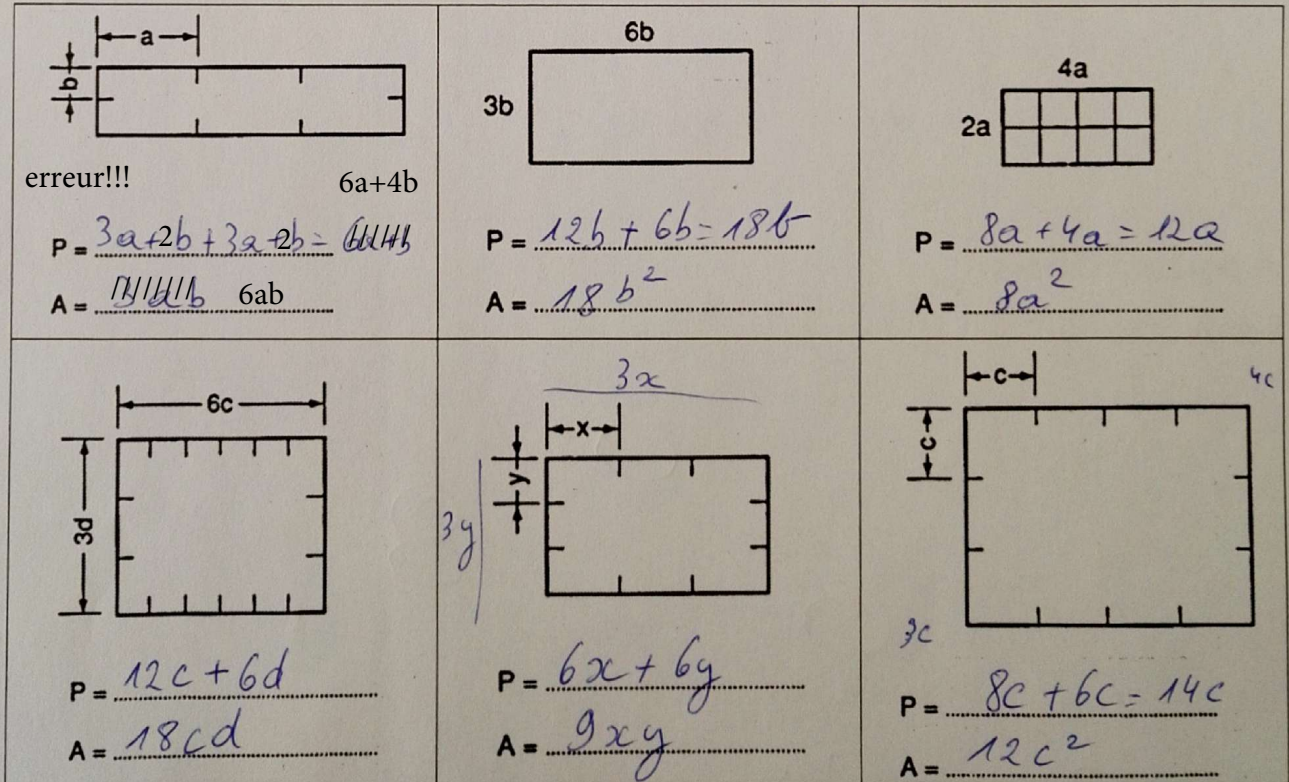 a
b
erreur!!! 6a+4b
P = 3a+2b+3a+2b=
A = 6ab
6b
3b
P = 12b + 6b = 18b
A = 18b²
4a
2a
P = 8a + 4a = 12a
A = 8a²
6c
3d
P = 12c + 6d
A = 18cd
3x
x
y
3y
P = 6x + 6y
A = 9xy
c
4c
c
3c
P = 8c + 6c = 14c
A = 12c²